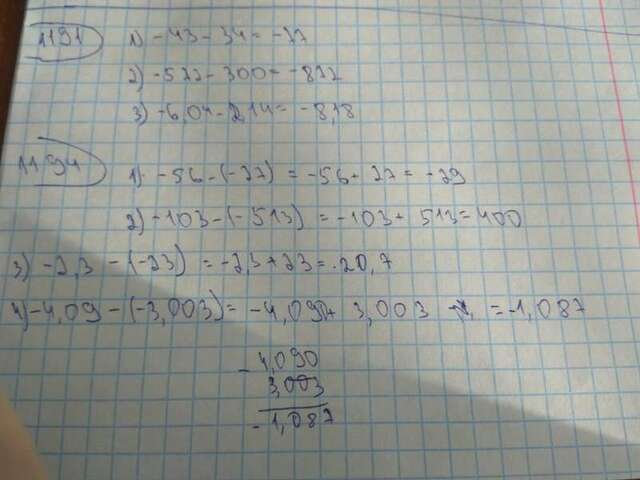 1191 1) -43-34=-77
2) -577-300=-877
3) -6,04-2,14=-8,18
1194
1) -56-(-27)=-56+27=-29
2) -103-(-513)=-103+513=400
3) -2,3-(-23)=-2,3+23=20,7
4) -4,09-(-3,003)=-4,090+3,003 =-1,087
-4,090
3,003
-1,087